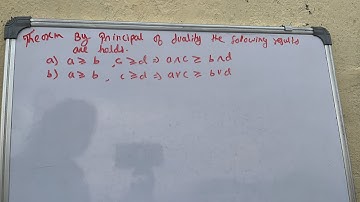 Theorem By Principal of duality the following results
are holds.
a) a ≥ b , c ≥ d ⇒ a∧c ≥ b∧d
b) a ≥ b , c ≥ d ⇒ a∨c ≥ b∨d